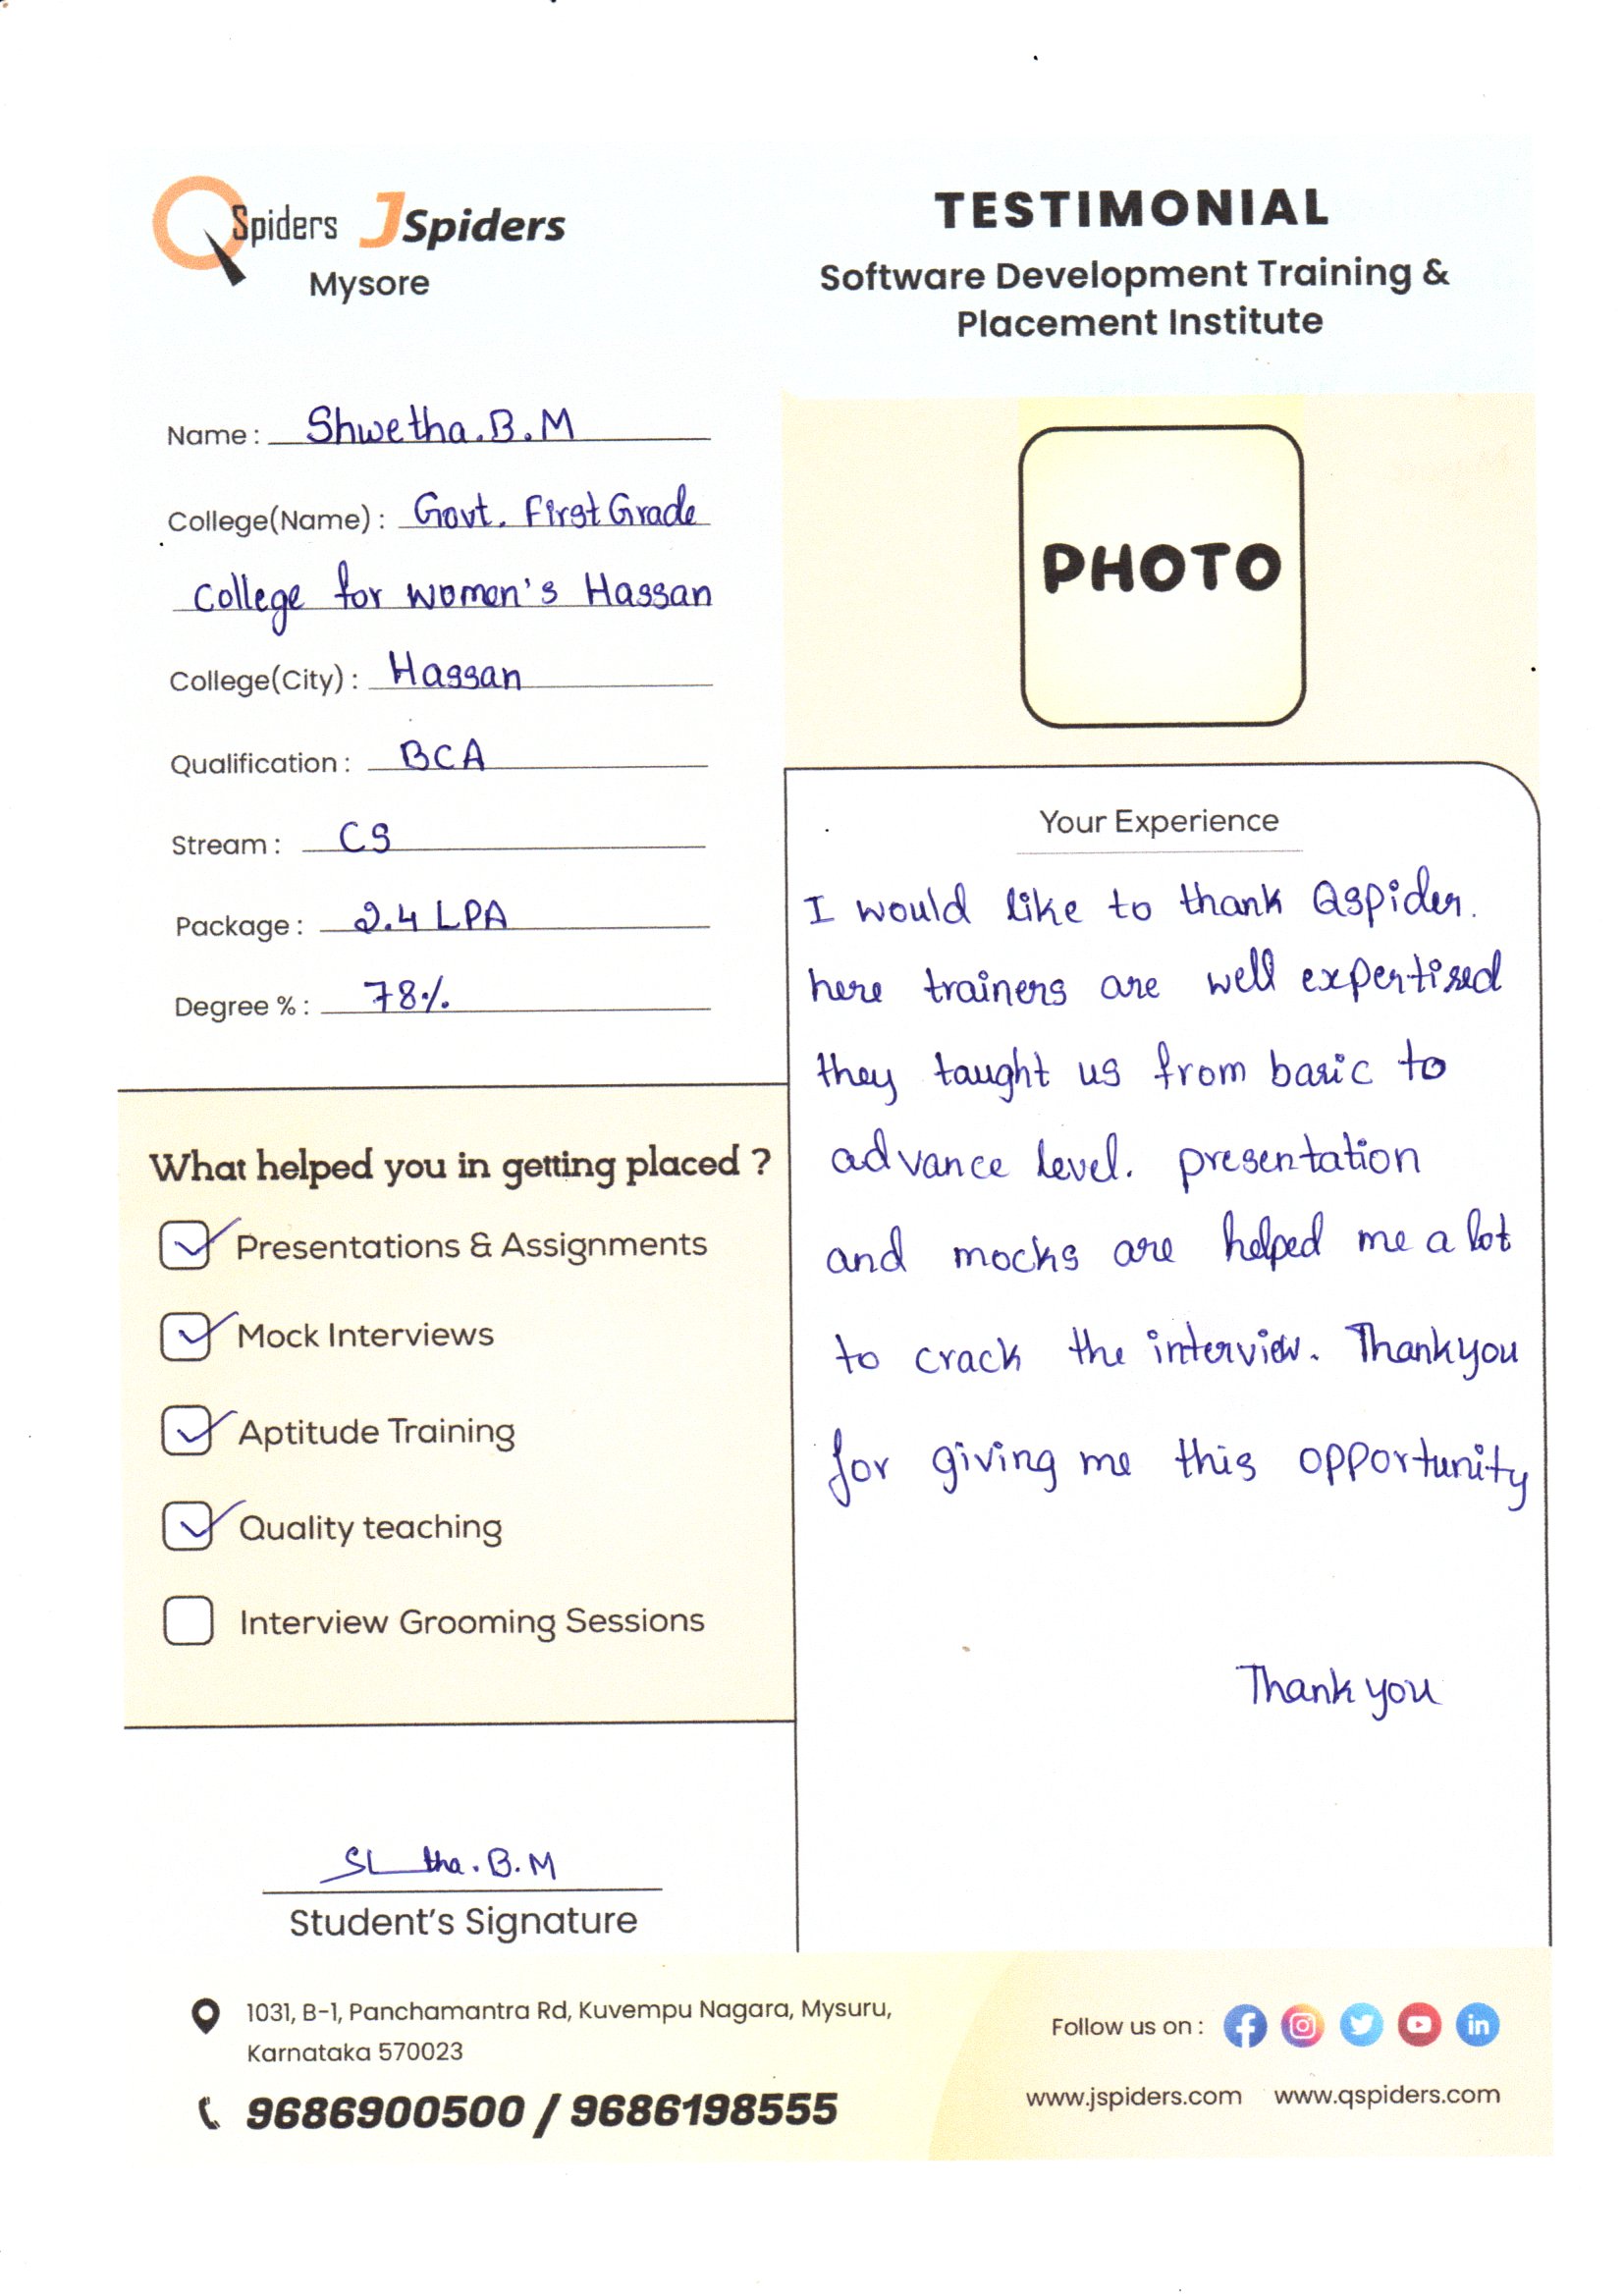 QSpiders JSpiders
Mysore
TESTIMONIAL
Software Development Training &
Placement Institute
Name : Shwetha.B.M
College(Name) : Govt. First Grade
College for women's Hassan
College(City) : Hassan
Qualification : BCA
Stream : CS
Package : 2.4 LPA
Degree % : 78%
PHOTO
What helped you in getting placed ?
Presentations & Assignments
Mock Interviews
Aptitude Training
Quality teaching
Interview Grooming Sessions
Your Experience
I would like to thank Qspider.
here trainers are well expertised
they taught us from basic to
advance level. presentation
and mocks are helped me a lot
to crack the interview. Thankyou
for giving me this opportunity
Thank you
tha.B.M
Student's Signature
1031, B-1, Panchamantra Rd, Kuvempu Nagara, Mysuru,
Karnataka 570023
9686900500 / 9686198555
Follow us on :
www.jspiders.com www.qspiders.com